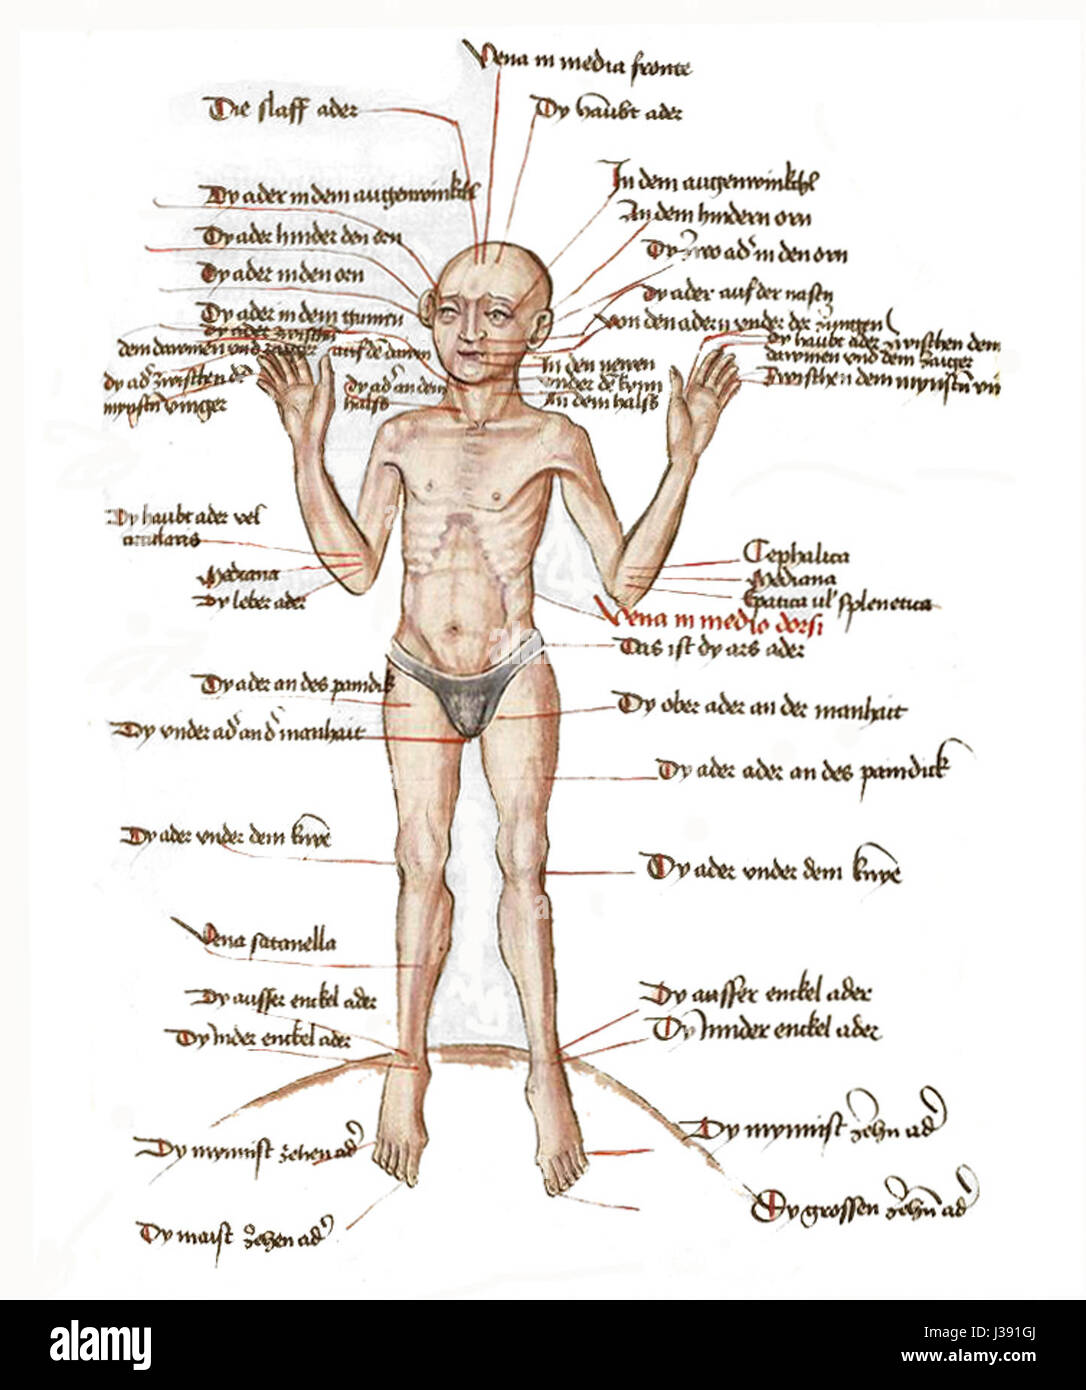 Vena in media fronte
Die slaff ader
Dy haubt ader
Dy ader in dem augenwinkchl
In dem augenwinkchl
An dem hindern orn
Dy ader hinder den orn
Dy zwo ad' in den orn
Dy ader in den orn
Dy ader auf der nasen
Dy ader in dem
Von den adern vnder der zungen
Dy ader zwischn
dem dawmen vnd zaiger
auf dē dawm
Dy haubt ader zwischen dem
dawmen vnd dem zaiger
In den
vnder dē kynn
In dem halsß
dy ad' zwischen dē
mynstn vinger
Dy ad' an dem
halsß
Zwischen dem mynstn vin
Dy haubt ader vel
Mediana
Dy leber ader
Cephalica
Mediana
Epatica ul' splenetica
Vena in medio dorsi
Das ist dy ars ader
Dy ader an des paindik
Dy ober ader an der manhait
Dy vnder ad' an d' manhait
Dy ader ader an des paindick
Dy ader vnder dem knye
Dy ader vnder dem knye
Vena satanella
Dy ausser enckel ader
Dy ausser enckel ader
Dy inder enckel ader
Dy innder enckel ader
Dy mynnist zehen ad'
Dy mynnist zehn ad'
Dy maist zehen ad'
Dy grossen zehen ad'
alamy
a
a
alamy
J391GJ
www.alamy.com